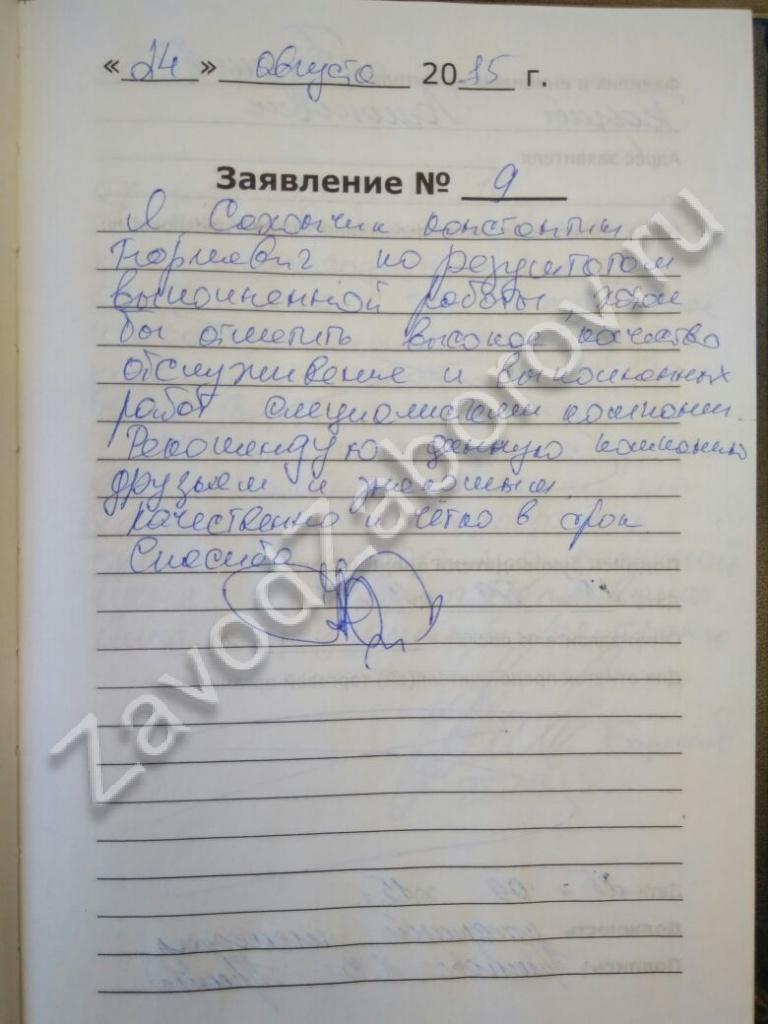 «24» августа 2015 г.
Заявление № 9
Я Сахончик Константин
по результатам
выполненной работы хотел
бы отметить высокое качество
обслуживения и выполненных
работ специалистами компании.
Рекомендую данную компанию
друзьям и знакомым.
качественно и чётко в срок
Спасибо
ZavodZaborov.ru